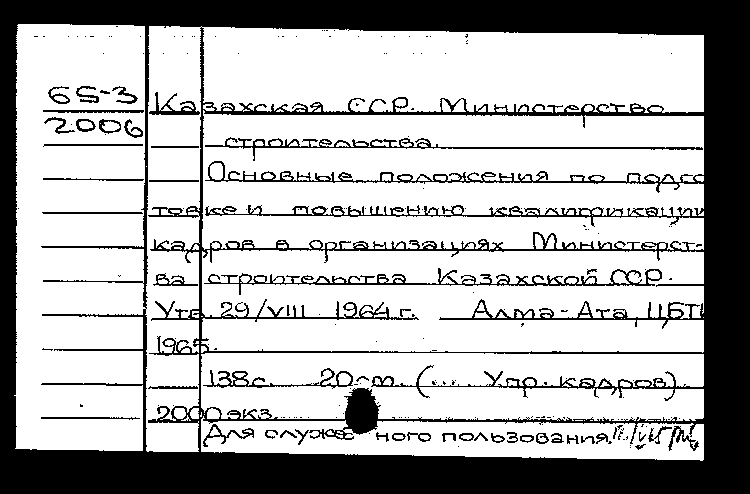 65-3 Казахская ССР. Министерство
2006 строительства.
Основные положения по подго
товке и повышению квалификации
кадров в организациях Министерст-
ва строительства Казахской ССР.
Утв. 29/VIII 1964 г. Алма-Ата, ЦБТИ
1965.
138с. 20 cm. (... Упр. кадров)
2000 экз.
Для служебного пользования.